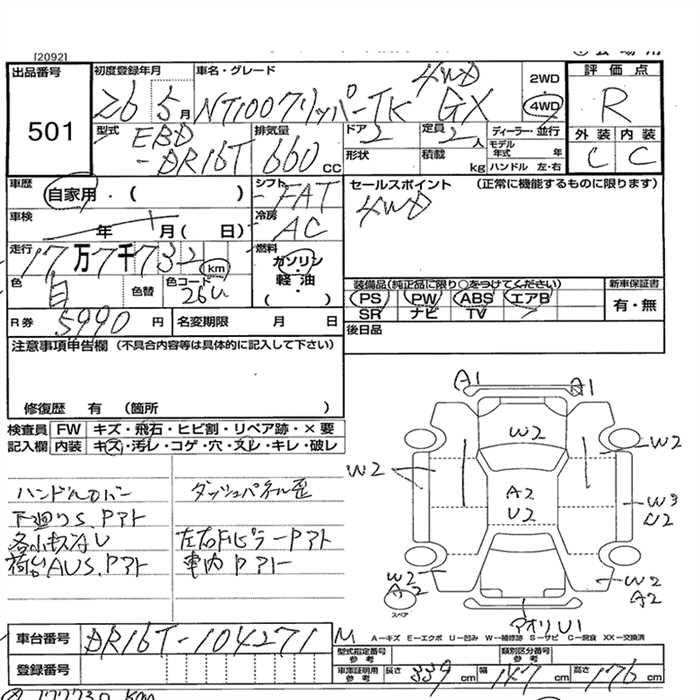 [2092]
出品番号 初度登録年月 車名・グレード 評価点
501
26 5月 NT100クリッパートラック GX 4WD
2WD
4WD
R
型式 EBD-DR16T
排気量 660 cc
ドア 2
定員 2人
形状
積載 kg
ディーラー・並行
モデル年式 年
ハンドル 左・右
外装 内装
C C
車歴 自家用・( )
シフト FAT
セールスポイント (正常に機能するものに限ります)
4WD
車検 年 月( 日)
冷房 AC
走行 17万7千732 km
燃料 ガソリン・軽油・( )
色 白 色替 色コード 26U
装備品(純正品に限り○をつけてください) 新車保証書
PS PW ABS エアB
SR ナビ TV
有・無
R券 5990円 名変期限 月 日
後日品
注意事項申告欄 (不具合内容等は具体的に記入して下さい)
修復歴 有 (箇所 )
検査員記入欄
FW キズ・飛石・ヒビ割・リペア跡・×要
内装 キズ・汚レ・コゲ・穴・スレ・キレ・破レ
ハンドルカバー ダッシュパネル歪
下廻りS、Pアト
各小キズ凹
左右Fピラー Pアト
荷台AUS、Pアト 車内Pアト
A1 A1
W2
W2 W2
A2
U2
W3
U2
W2
A2
W2
A2
スペア
アオリU1
A−キズ E−エクボ U−凹み W−補修跡 S−サビ C−腐食 XX−交換済
車台番号 DR16T-104271
M
型式指定番号 参考
類別区分番号 参考
登録番号
車庫証明用 参考 長さ 339cm 幅 147cm 高さ 176cm
177730 Km